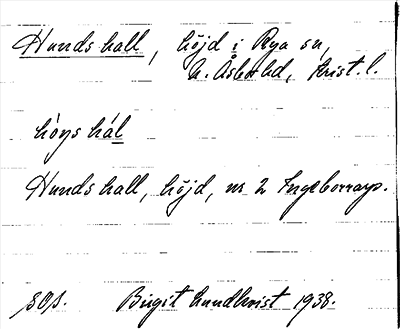 Hundshall, höjd i Rya sn,
N. Åsbo hd, Krist. l.
Hundshall, höjd, nr 2 Ingeborrarp.
Birgit Lundkvist 1938.